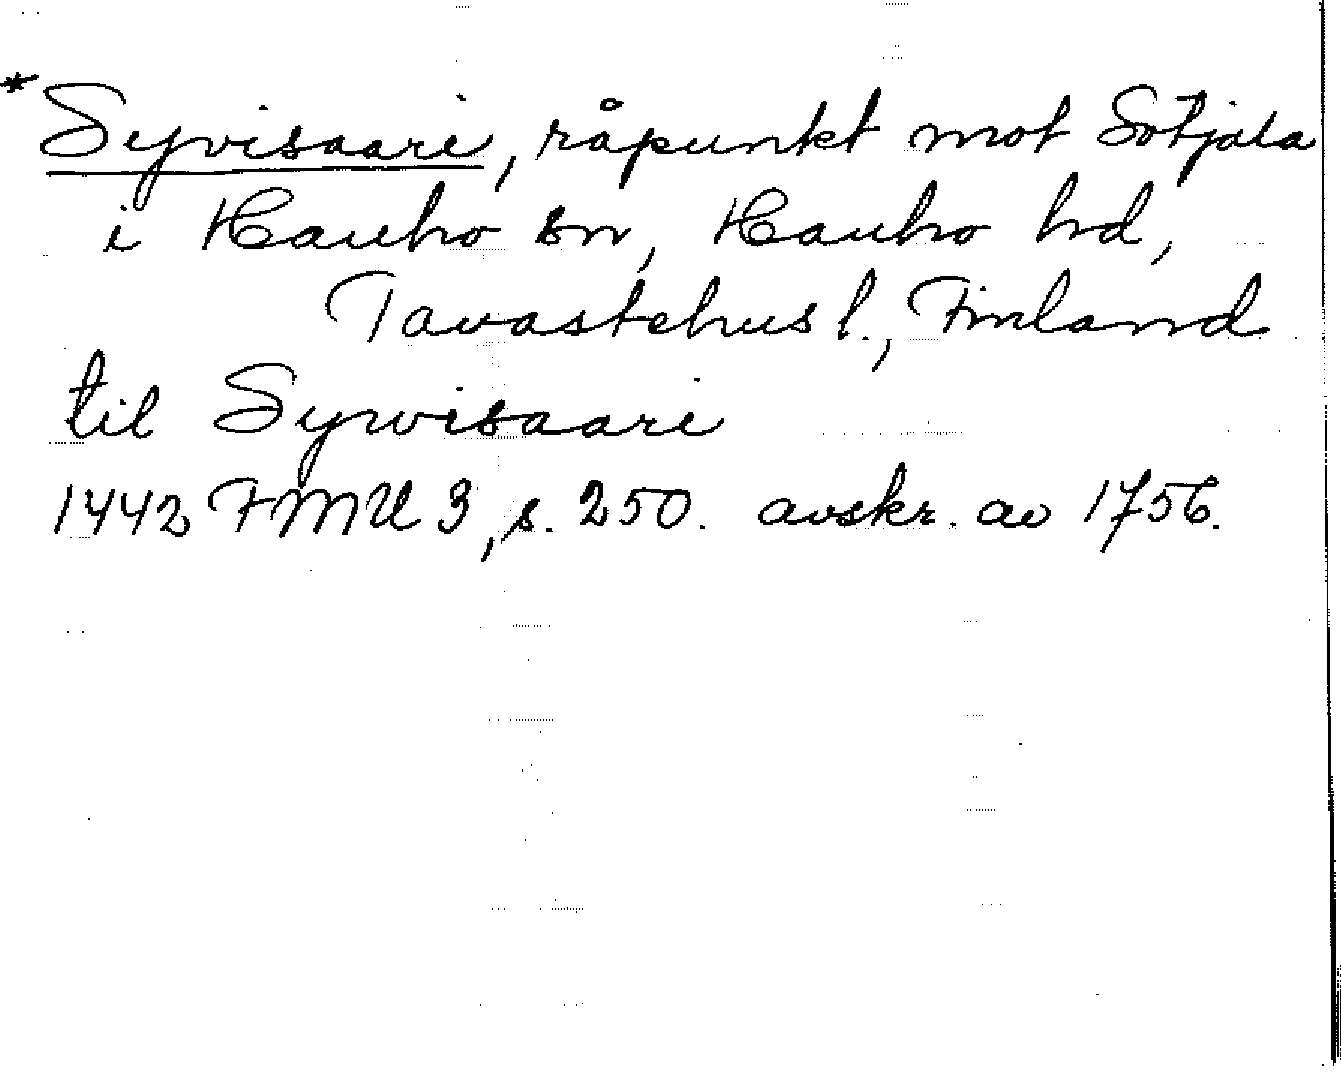 *Syvisaari, råpunkt mot Sotjala
i Hauho sn, Hauho hd,
Tavastehus l., Finland
til Syrvisaari
1442 FMU 3, s. 250. avskr. av 1756.